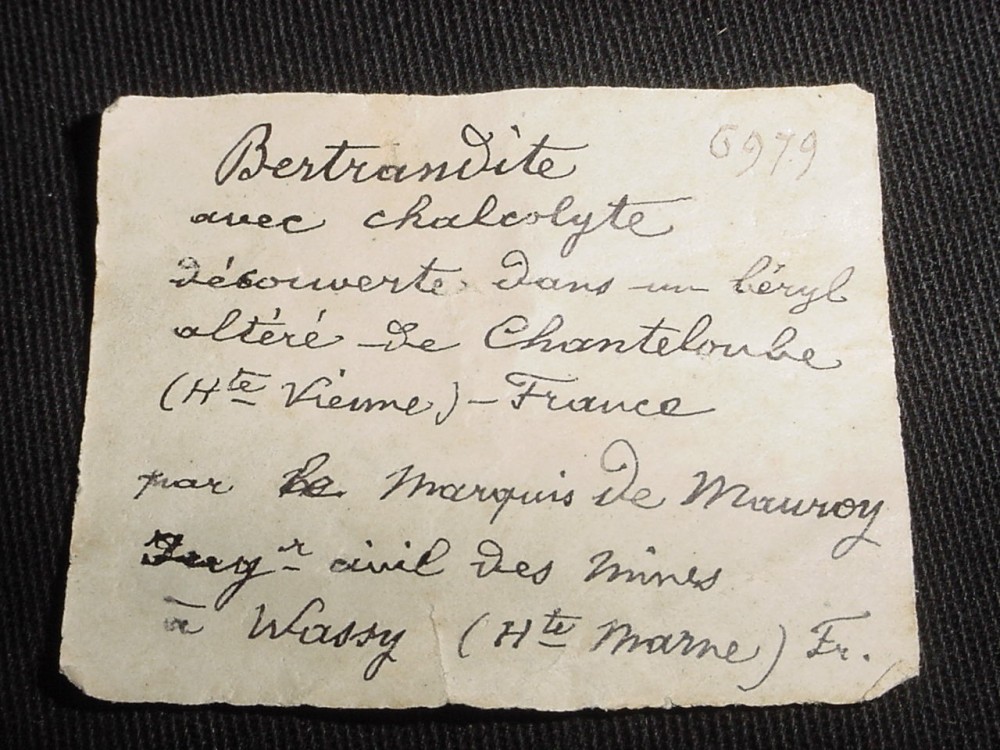 Bertrandite 6979
avec chalcolyte
découverte dans un béryl
altéré de Chanteloube
(Hte Vienne) - France
par le Marquis de Mauroy
Ingr civil des Mines
à Wassy (Hte Marne) Fr.